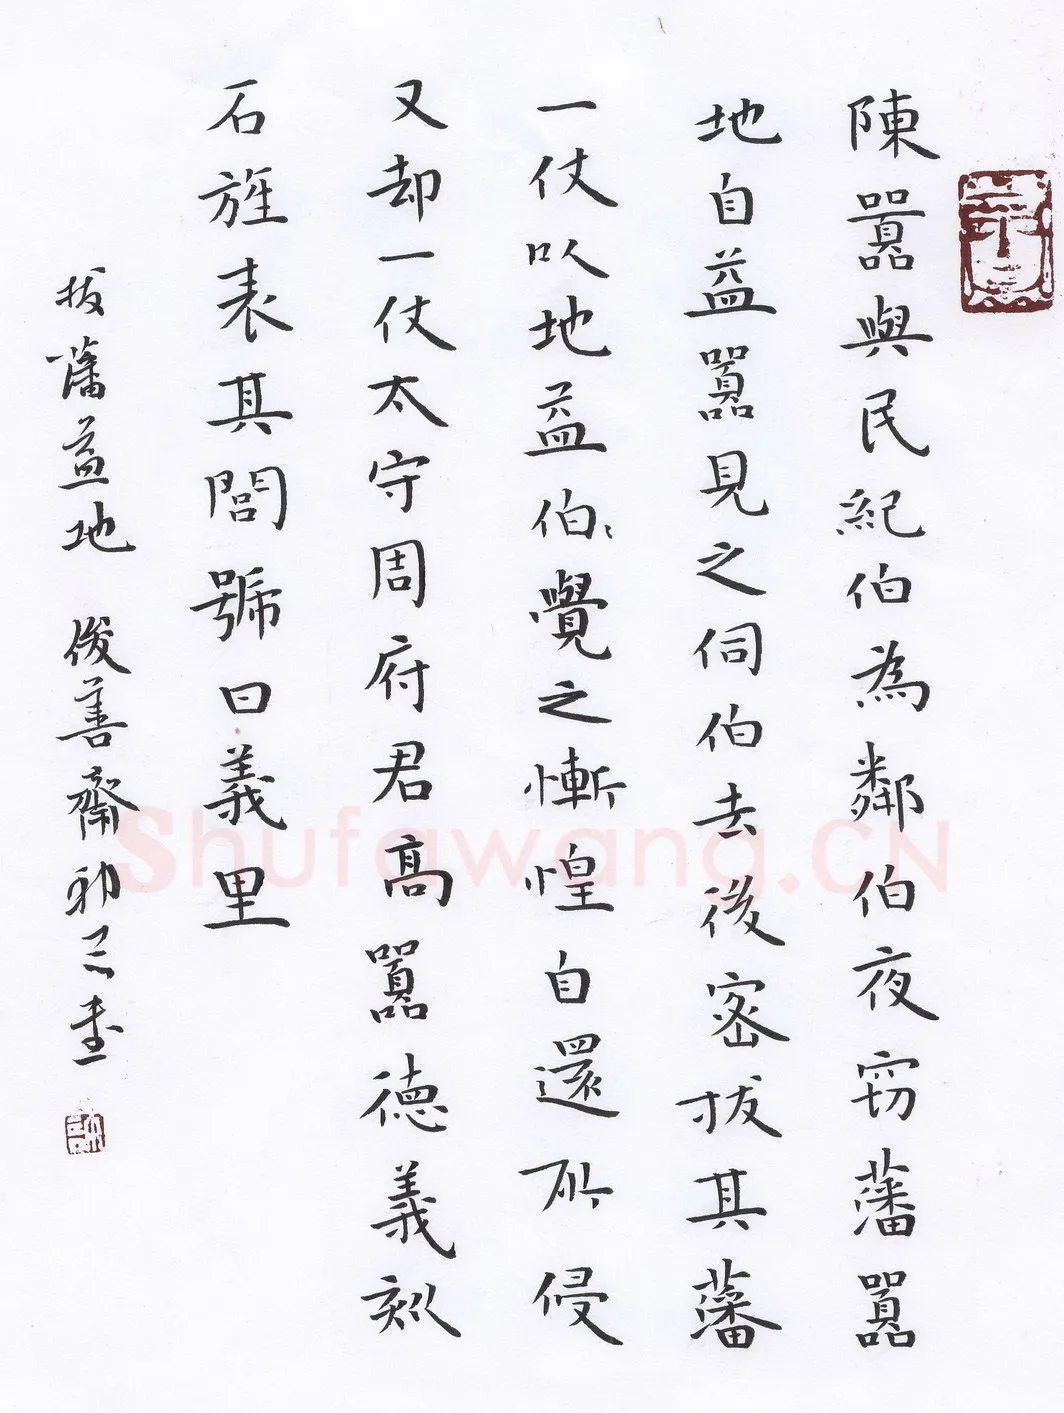 陳嚣與民紀伯為鄰伯夜窃藩嚣
地自益嚣見之伺伯去後密拔其藩
一仗以地益伯〻覺之慚惶自還所侵
又却一仗太守周府君高嚣德義刻
石旌表其閭號曰義里
拔藩益地 俊善齋
Shufawang.CN